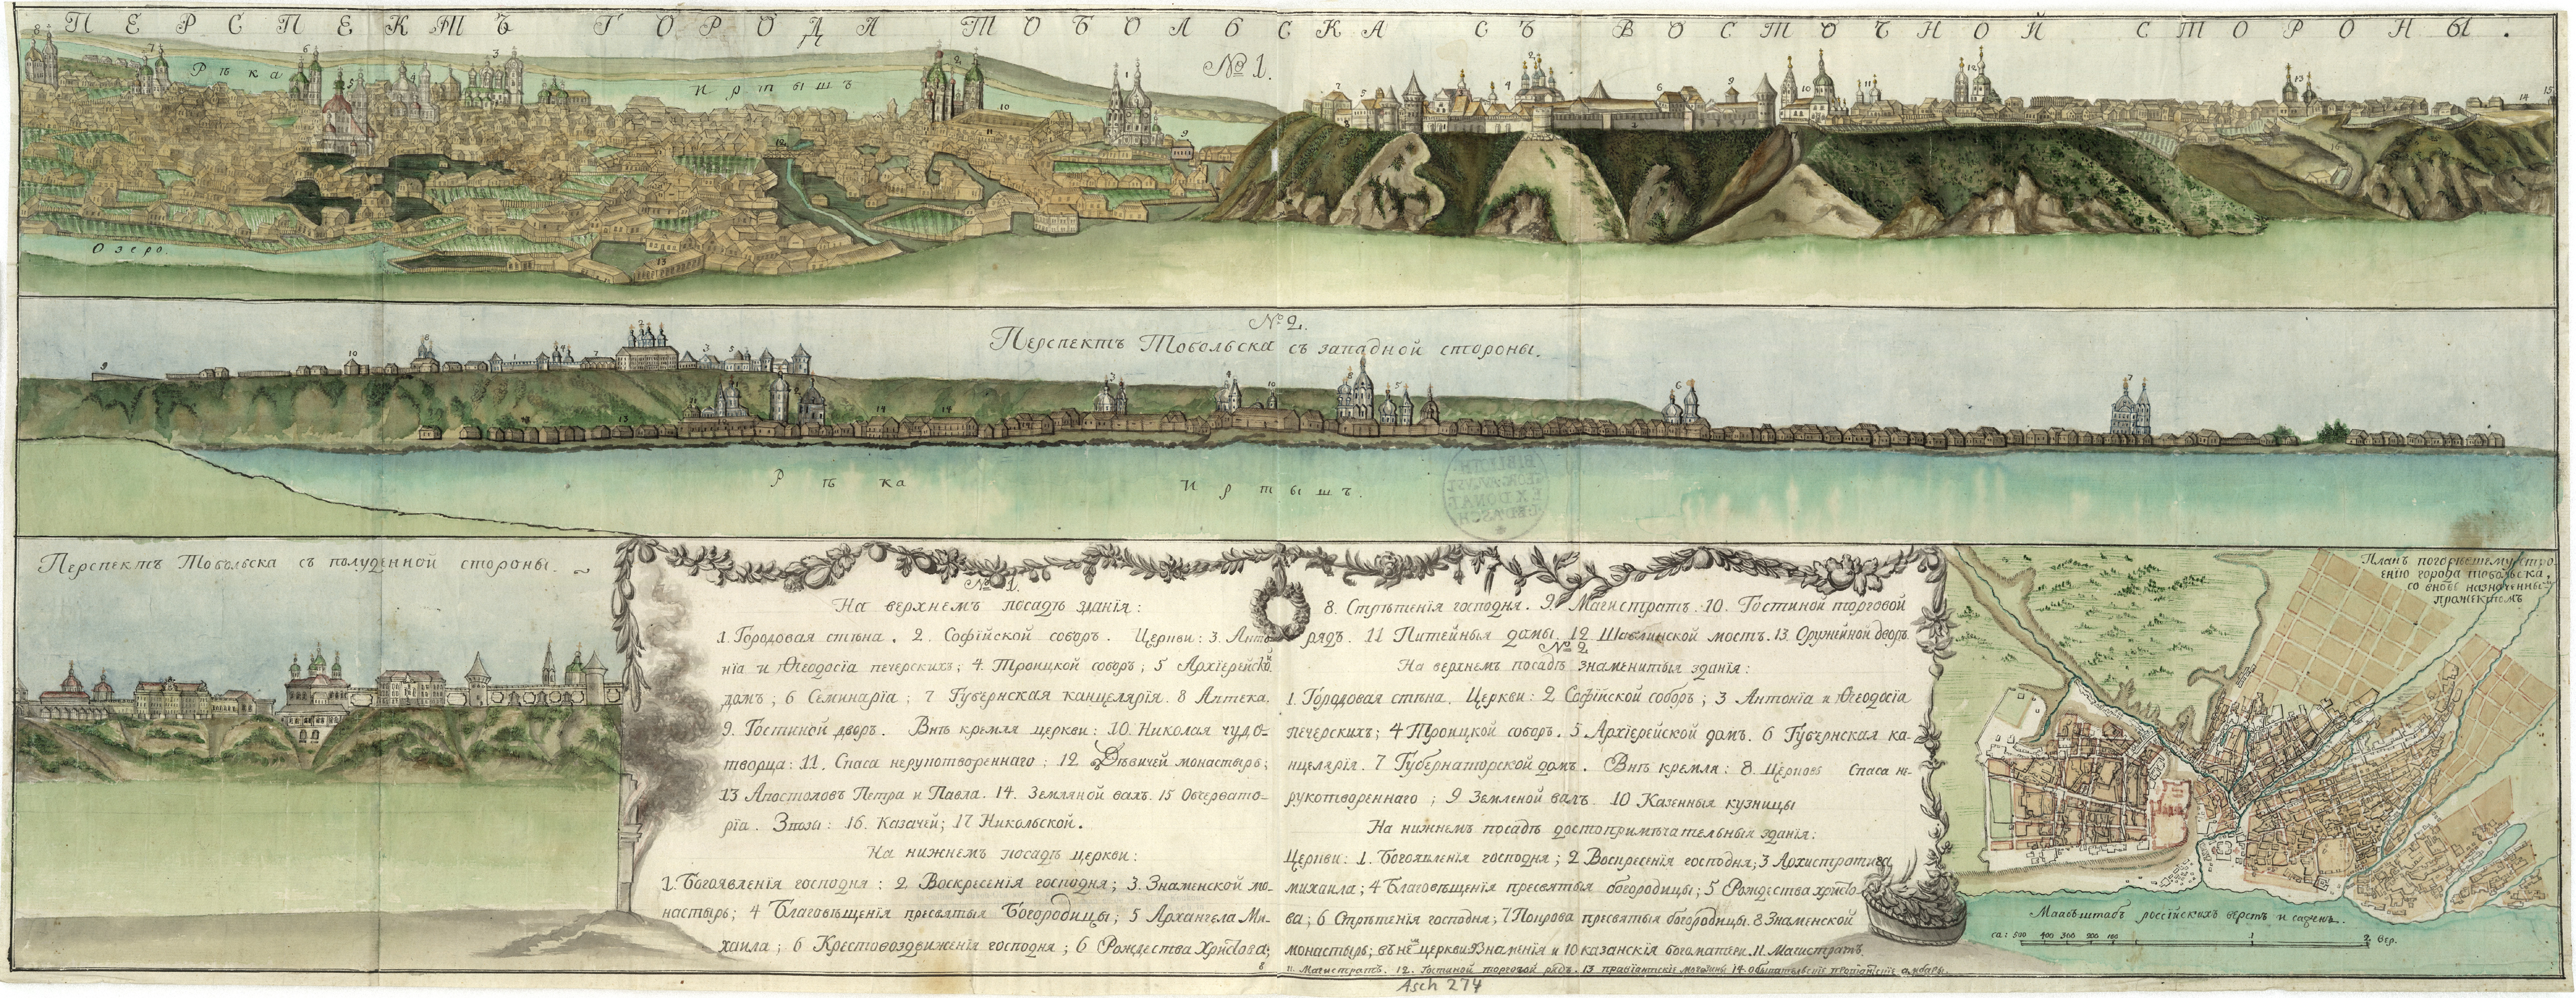 ПЕРСПЕКТЪ ГОРОДА ТОБОЛЬСКА СЪ ВОСТОЧНОЙ СТОРОНЫ.
№ 1.
Рѣка Иртышъ
Озеро.
№ 2.
Перспектъ Тобольска съ западной стороны.
Рѣка Иртышъ.
Перспектъ Тобольска съ полуденной стороны.
№ 1.
На верхнемъ посадѣ зданія:
1. Городовая стѣна. 2. Софійской соборъ. Церкви: 3. Анто-
нія и Ѳеодосія печерскихъ; 4 Троицкой соборъ; 5 Архіерейской
домъ; 6 Семинарія; 7 Губернская канцелярія. 8 Аптека.
9. Гостиной дворъ. Внѣ кремля церкви: 10. Николая чудо-
творца: 11. Спаса нерукотвореннаго; 12 Дѣвичей монастырь;
13 Апостоловъ Петра и Павла. 14. Земляной валъ. 15 Обсервато-
рія. Взвозы: 16. Казачей; 17 Никольской.
На нижнемъ посадѣ церкви:
1. Богоявленія господня: 2 Воскресенія господня; 3. Знаменской мо-
настырь; 4 Благовѣщенія пресвятыя Богородицы; 5 Архангела Ми-
хаила; 6 Крестовоздвиженія господня; 6 Рождества Христова;
8
8. Стрѣтенія господня. 9. Магистратъ. 10. Гостиной торговой
рядъ. 11 Питейныя домы. 12 Шавлинской мостъ. 13. Оружейной дворъ.
№ 2
На верхнемъ посадѣ знаменитыя зданія:
1. Городовая стѣна. Церкви: 2 Софійской соборъ; 3 Антонія и Ѳеодосія
печерскихъ; 4 Троицкой соборъ. 5 Архіерейской домъ. 6 Губернская ка-
нцелярія. 7 Губернаторской домъ. Внѣ кремля: 8 Церковь Спаса не-
рукотвореннаго; 9 Земленой валъ. 10 Казенныя кузницы
На нижнемъ посадѣ достопримѣчательныя зданія:
Церкви: 1. Богоявленія господня; 2 Воскресенія господня; 3 Архистратига
михаила; 4 Благовѣщенія пресвятыя богородицы; 5 Рождества христо-
ва; 6 Стрѣтенія господня; 7 Покрова пресвятыя богородицы. 8 Знаменской
монастырь; въ немъ церкви Знаменія и 10 казанскія богоматери. 11. Магистратъ.
11. Магистратъ. 12. Гостиной торговой рядъ. 13 провіантскіе магазины 14. обывательскіе амбары.
Asch 274
Планъ погорѣвшему стро-
енію города тобольска,
со вновь назначеннымъ
прожектомъ
Масъштабъ россійскихъ верстъ и саженъ.
са: 500 400 300 200 100 1 2 вер.